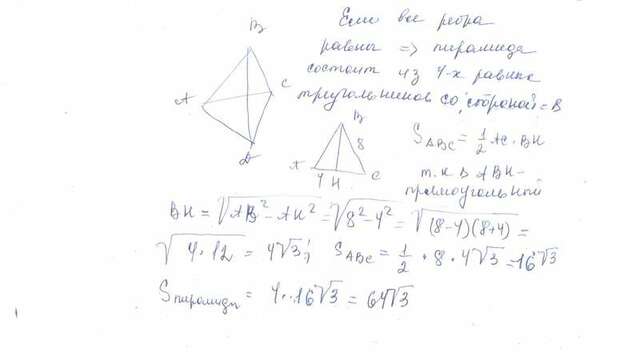 Если все ребра
равны => пирамида
состоит из 4-х равных
треугольников со стороной = 8
B
A
C
D
B
8
A
4
H
C
S_ABC = 1/2 AC · BH
т.к Δ ABH -
прямоугольный
BH = √(AB² - AH²) = √(8² - 4²) = √((8-4)(8+4)) =
√(4·12) = 4√3; S_ABC = 1/2 · 8 · 4√3 = 16√3
S пирамиды = 4 · 16√3 = 64√3